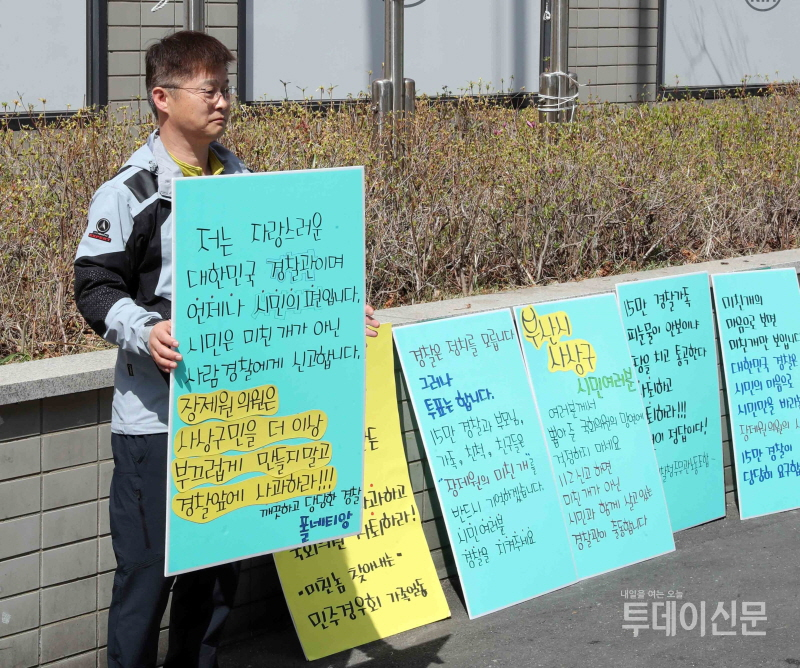 저는 자랑스러운
대한민국 경찰관이며
언제나 시민의 편입니다.
시민은 미친개가 아닌
사람 경찰에게 신고합니다.
장제원 의원은
사상구민을 더 이상
부끄럽게 만들지말고
경찰앞에 사과하라!!!
깨끗하고 당당한 경찰
폴네티앙
사과하고
사퇴하라!
•미친놈 찾아내는•
민주경우회 가족일동
경찰은 정치를 모릅니다.
그러나
투표는 합니다.
15만 경찰과 부모님,
가족, 친척, 친구들은
"장제원의 미친개"를
반드시 기억하겠습니다.
시민여러분
경찰을 지켜주세요
부산시
사상구
시민여러분
여러분께서
뽑아준 국회의원의 망언에
걱정하지 마세요
112신고 하면
미친개가 아닌
시민과 함께 살고있는
경찰관이 출동합니다
15만 경찰가족
치고 통곡한다
정답이다!
미친개의
마음으로 보면
미친개만 보입니다.
대한민국 경찰은
시민의 마음으로
시민만을 바라
장제원의원의 사
15만 경찰이
당당히 요구합
내일을 여는 오늘
투데이신문